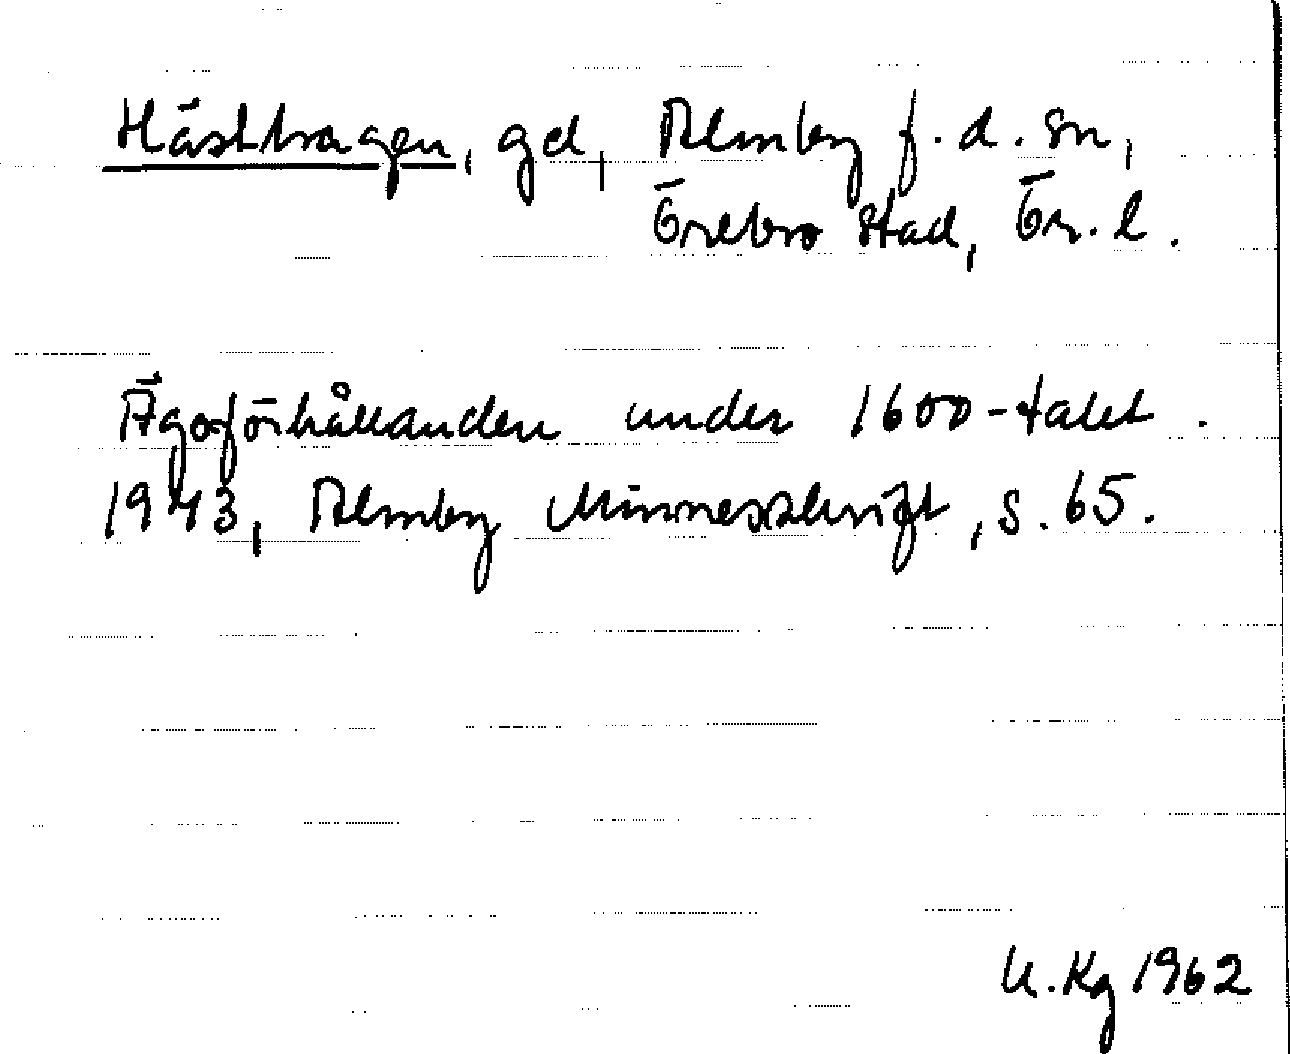 Hästhagen, gd, Almby f.d. sn,
Örebro stad, Ör. l.
Ägoförhållanden under 1600-talet.
1943, Almby Minnesskrift, s. 65.
U.Kg 1962